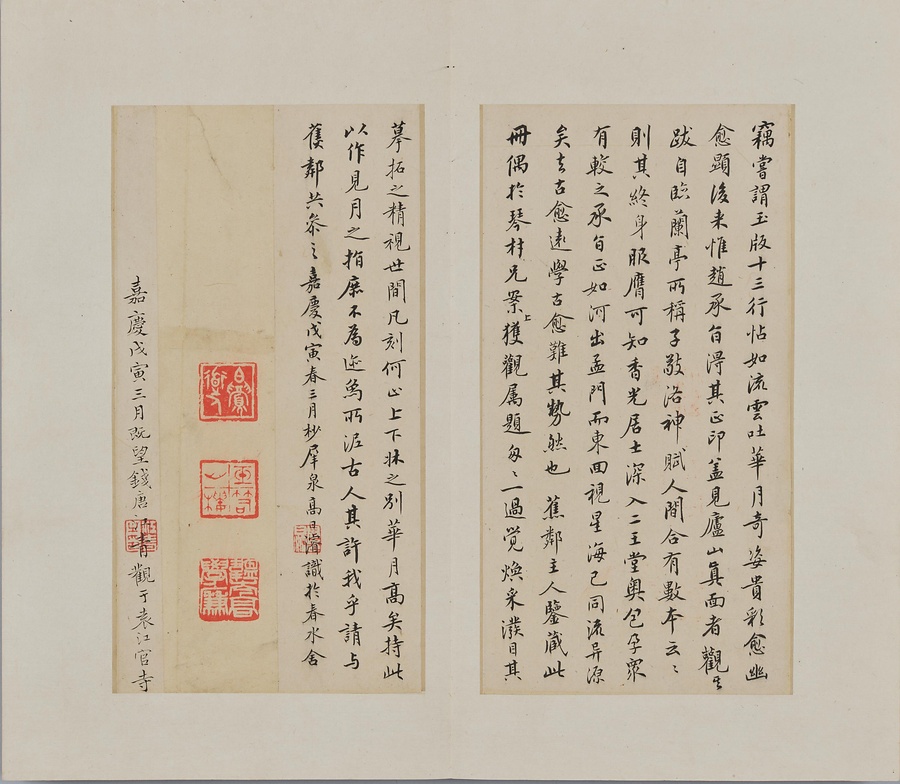 竊嘗謂玉版十三行帖如流雲吐華月奇姿貴彩愈幽
愈顯後来惟趙承旨淂其正印盖見廬山真面者觀其
跋自臨蘭亭所稱子敬洛神賦人間合有數本云〻
則其終身服膺可知香光居士深入二王堂奥包孕眾
有較之承旨正如河出孟門而東回視星海已同流异源
矣去古愈遠學古愈難其勢然也 蕉鄰主人鑒蔵此
冊偶於琴材兄案上獲觀属題匆〻一過覺煥采濮目其
摹拓之精視世間凡刻何止上下牀之別華月高矣持此
以作見月之指庶不為迹象所泥古人其許我乎請与
蕉鄰共叅之嘉慶戊寅春三月杪犀泉高日濬識於春水舍
嘉慶戊寅三月既望錢唐 青觀于袁江官寺